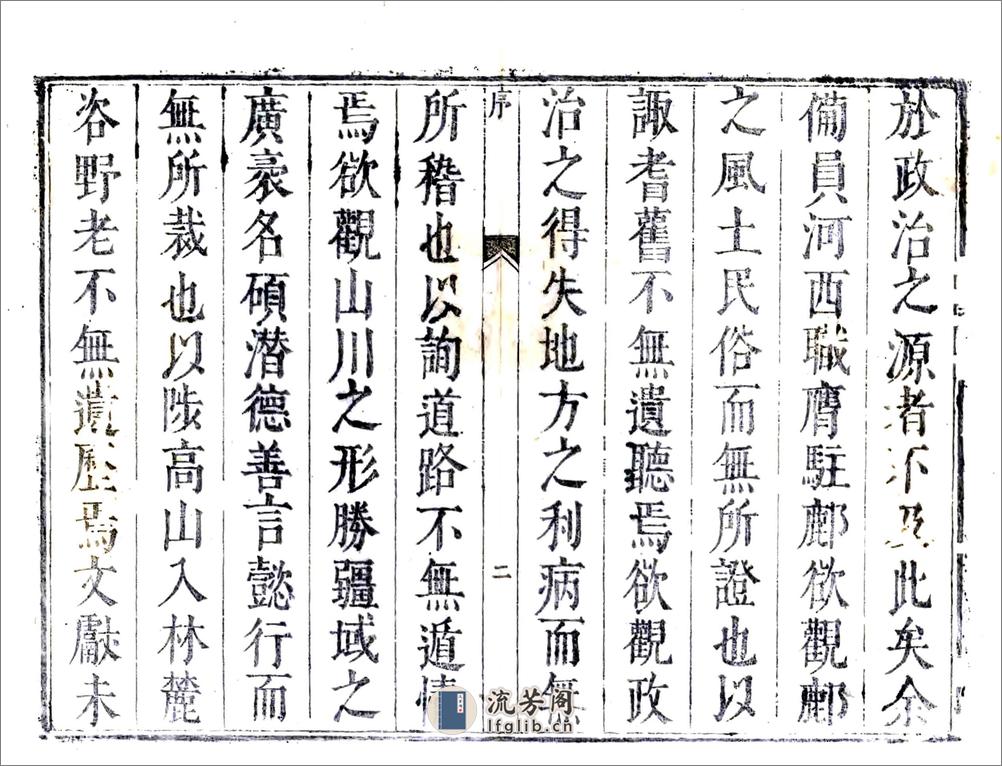 於政治之源者不及此矣余
備員河西職膺駐鄜欲觀鄜
之風土民俗而無所證也以
諏耆舊不無遺聽焉欲觀政
治之得失地方之利病而無
序
二
所稽也以詢道路不無遁情
焉欲觀山川之形勝疆域之
廣豪名碩潛德善言懿行而
無所裁也以陟高山入林麓
咨野老不無遺歷焉文獻未
流芳阁
lfglib.cn